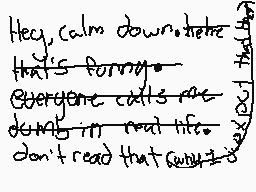 Hey, calm down. hehe
that's funny.
everyone calls me
dumb in real life.
don't read that